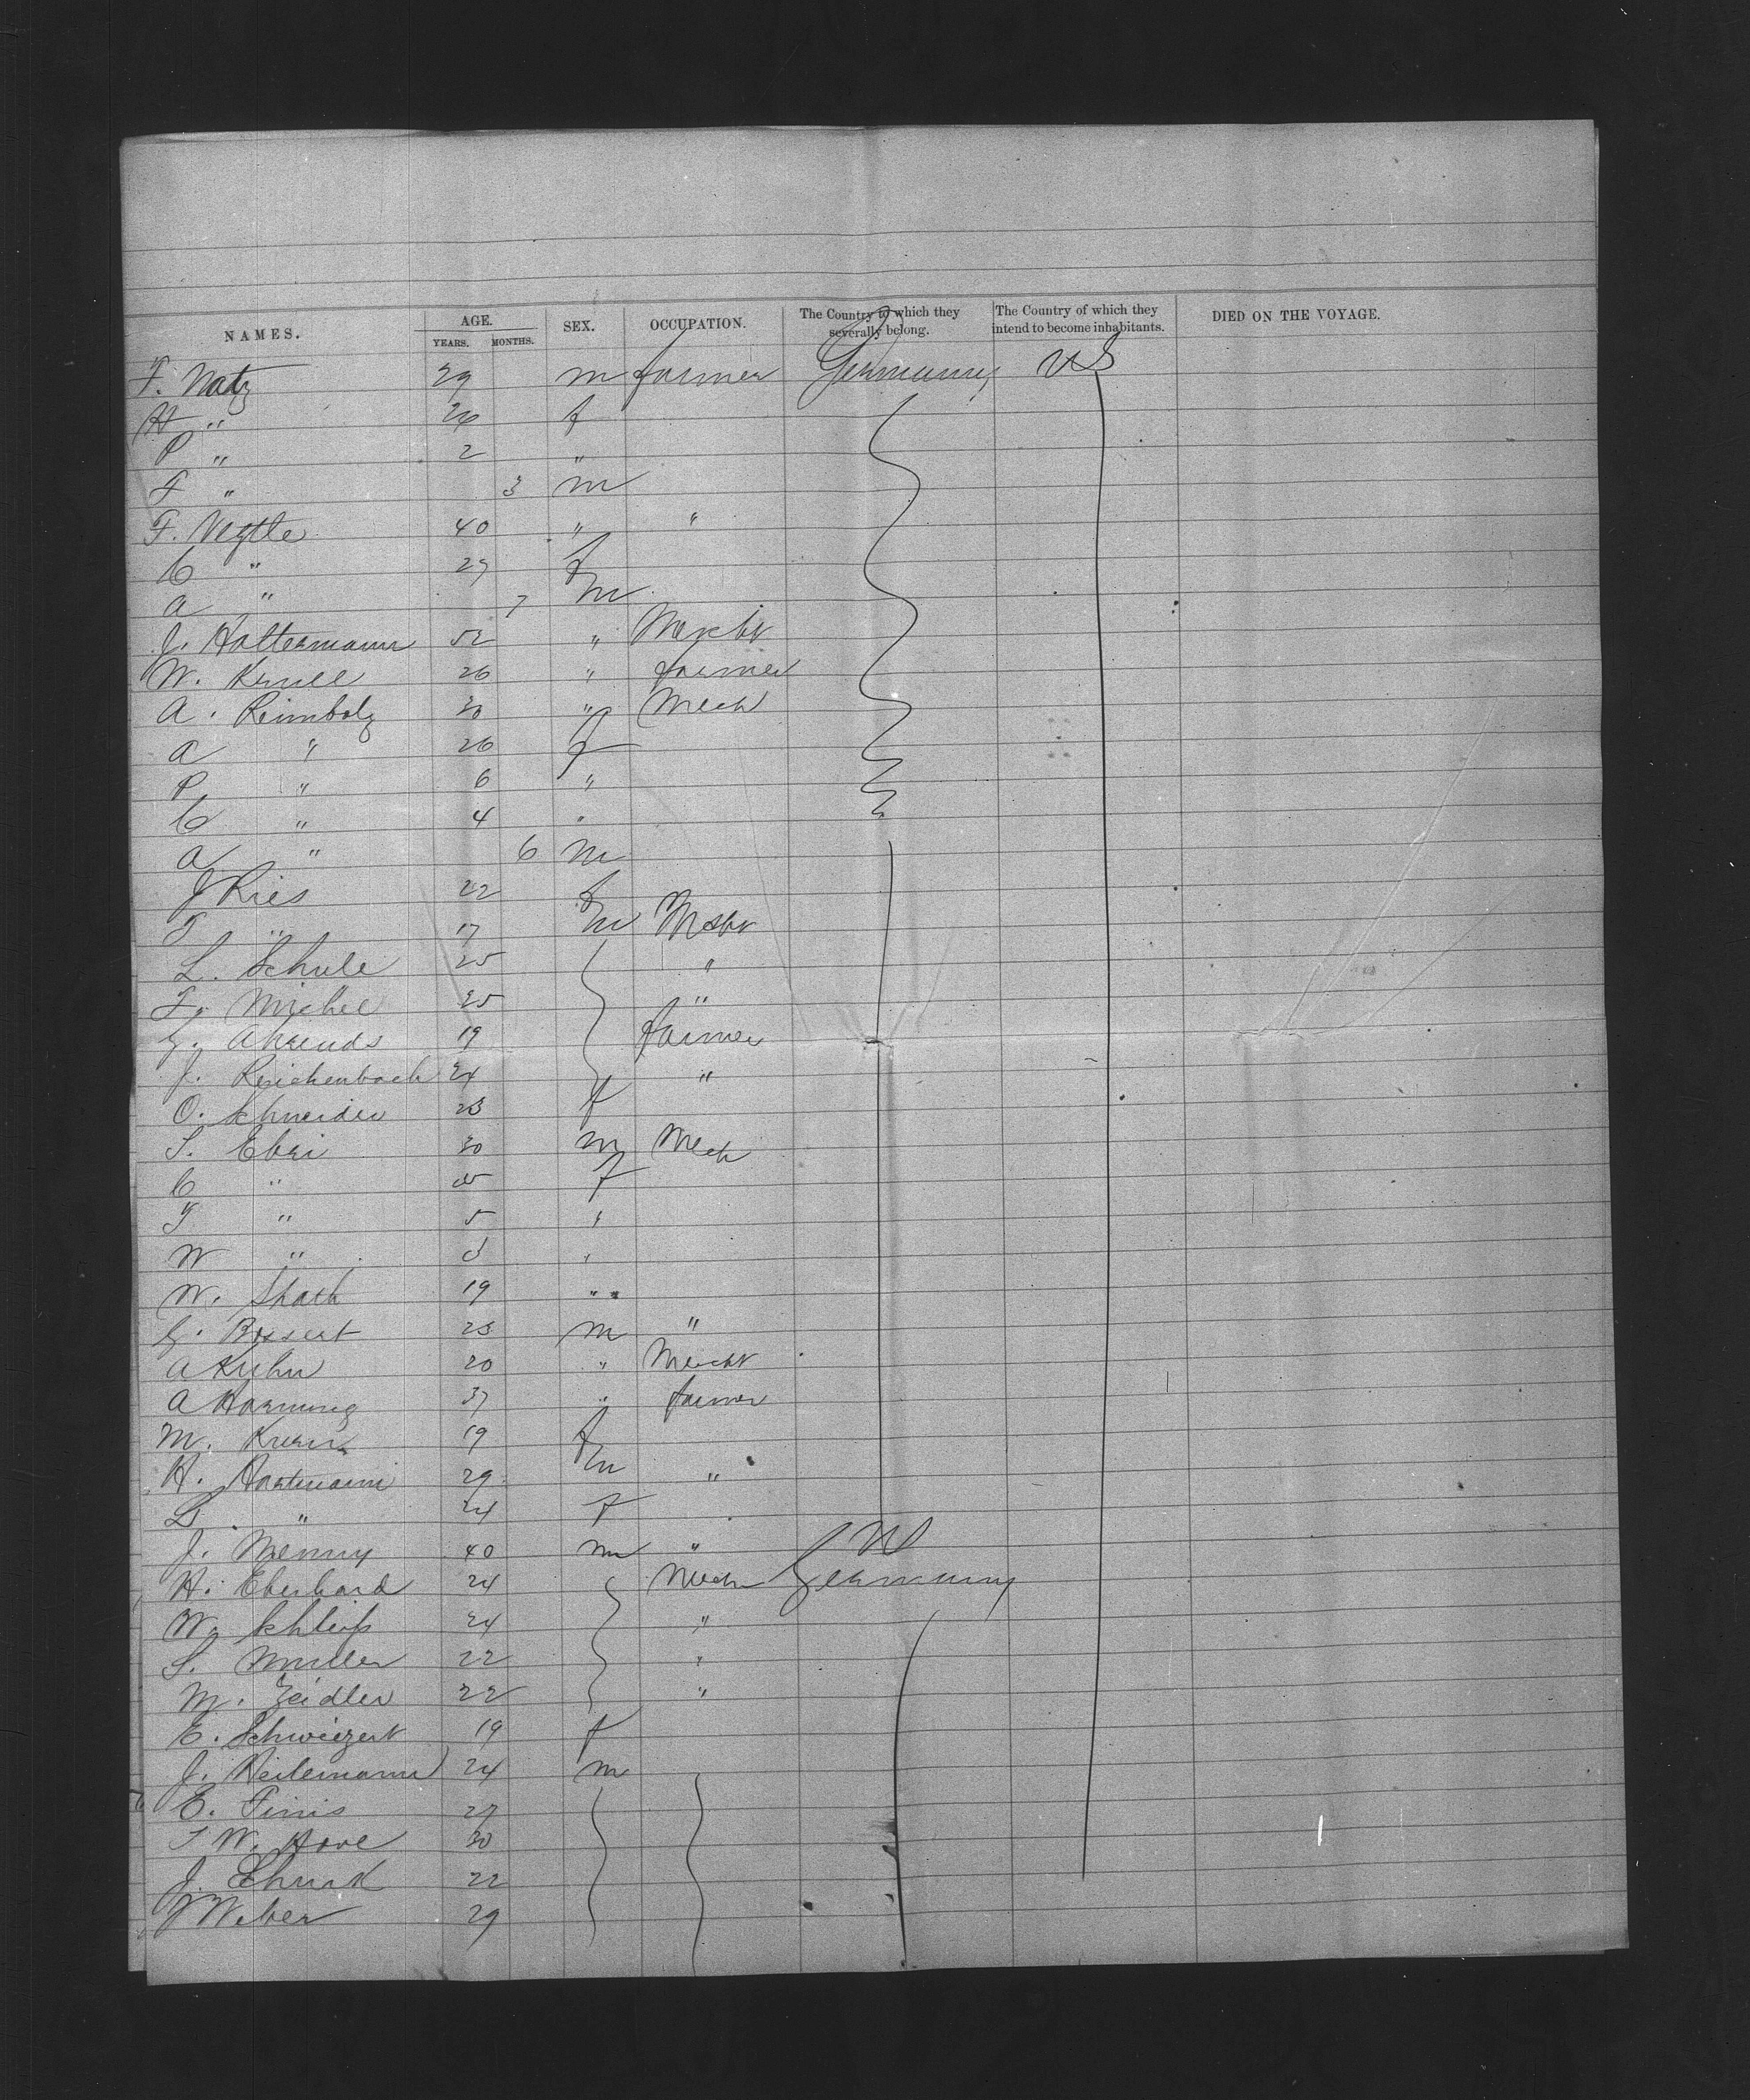 NAMES. AGE. YEARS. MONTHS. SEX. OCCUPATION. The Country to which they severally belong. The Country of which they intend to become inhabitants. DIED ON THE VOYAGE.
F. Natz 29 m farmer Germany US
H " 26 f
P " 2 "
F " 3 m
F. Vegtle 40 " "
C " 29 f
A " 7 m
J. Holtermann 52 "
W. Krull 26 " farmer
A. Reimbolz 30 " Mech
A " 26 f
P " 6 "
C " 4 "
A " 6 m
J Ries 22 f
T " 17 m
L. Schule 25 "
F. Michel 25 "
G. Ahrends 19 farmer
J. Reichenbach 24 "
O. Schneider 23 f
S. Ebri 30 m Mech
C " f
T " 5 "
W "
W. 19 "
G. Bossert 23 m "
A Kuhn 20 "
A Hornung 37 " farmer
M. 19 f
H. Hartmann 29 m "
L " 24 f
J. Menny 40 m "
H. Eberhard 24 Mech Germany
W. 24 "
S. Muller 22 "
M. Zeidler 22 "
E. Schweizert 19 f
J. Heilemann 24 m
E. Finis 27
30
J. Schurk 22
J Weber 29